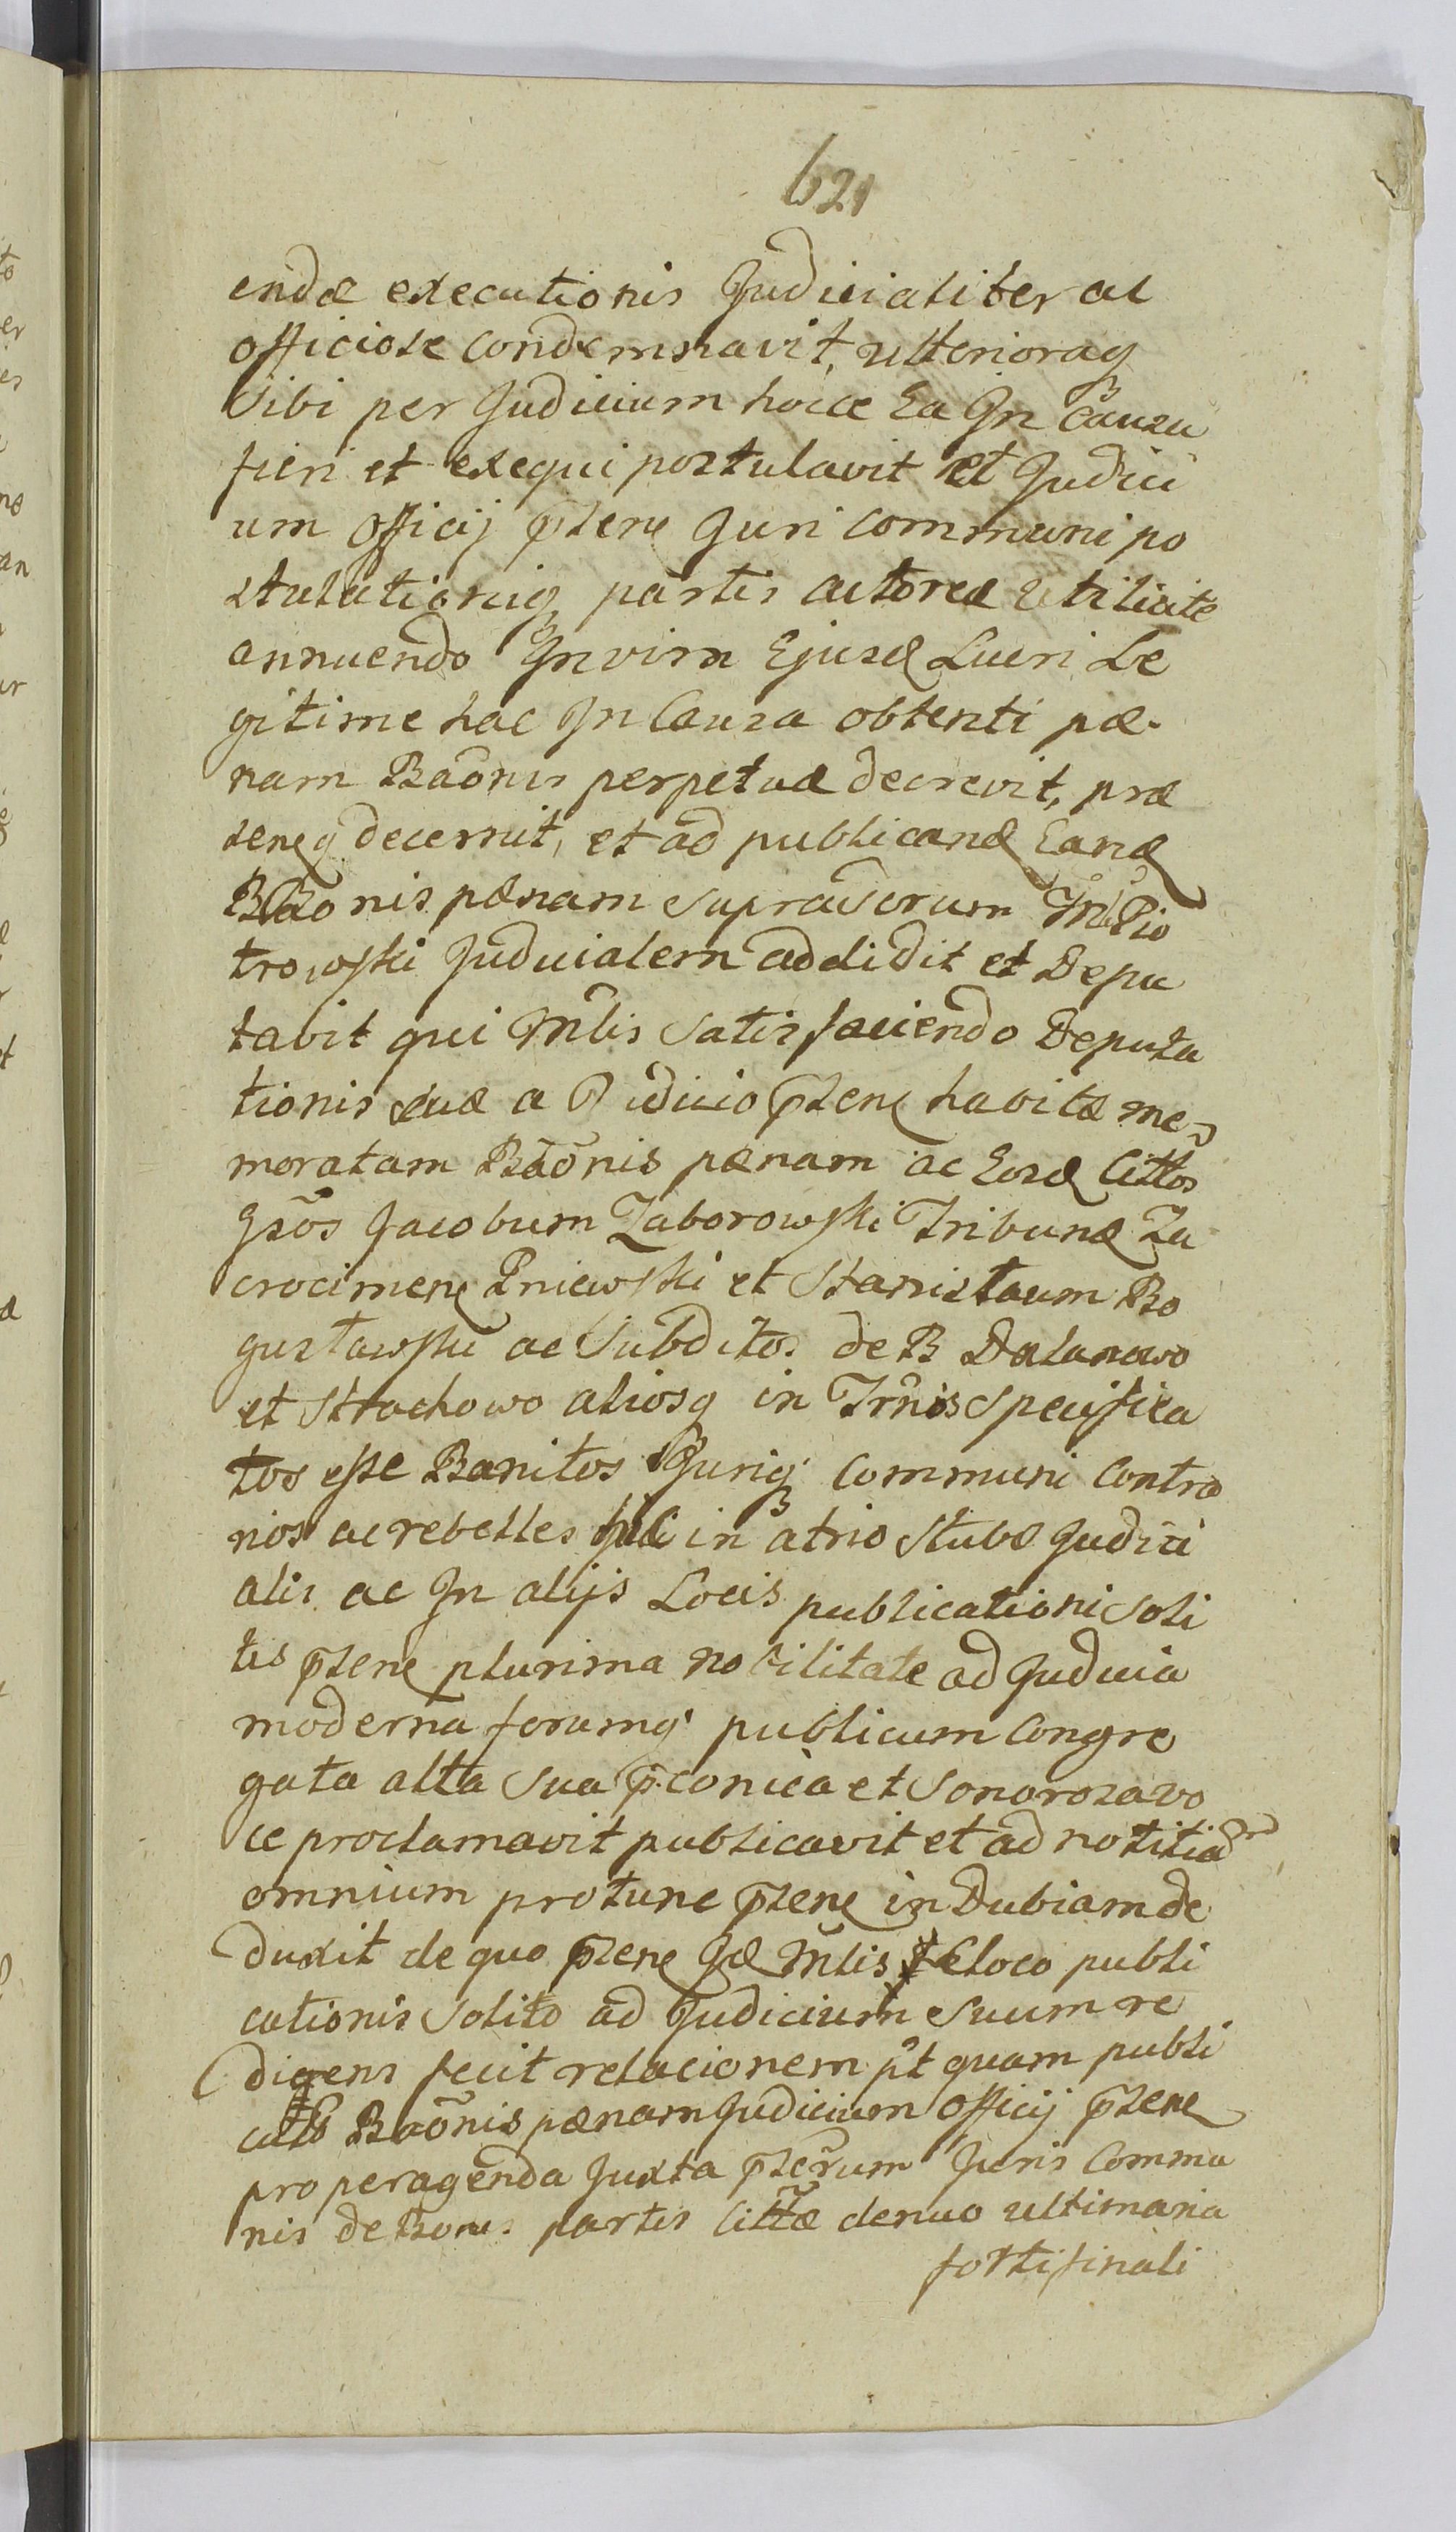 621
endæ executionis Judicialiter ac
officiose condemnavit, ulterioraq
sibi per Judicium hocce Ea In Causa
fieri et exequi postulavit et Judici
um Officij p̃sens Juri communi po
stulationiq partis actoreæ utilite
annuendo In vim Ejusd Lucri Le
gitime hac In Causa obtenti pæ-
nam Bãonis perpetuæ decrevit, præ
sensq decernit, et ad publicand Eand
Bãonis pænam supra Mlem Pio
trowski Judicialem addidit et Depu
tavit qui Mlis satisfaciendo Deputa
tionis suæ a Judicio p̃sens habitæ me
moratam Bãonis pænam ac Eosd Cittos
Gsõs Jacobum Zaborowski Tribund Za
crocimens Pniewski et Stanisłaum Bo
gusławski ac Subditos de B Dalanowo
et Strachowo aliosq in Trm̃is specifica
tos esse Banitos Juriq communi contra
rios ac rebelles hic in atrio Stubæ Judici
alis ac In alijs Locis publicationi soli
tis p̃sens plurima nobilitate ad Judicia
moderna forumq publicum Congre
gata alta sua p̃conica et sonorosa vo
ce proclamavit publicavit et ad notitiam
omnium protunc p̃sens indubiam de
duxit de quo p̃sens Id Mlis e loco publi
cationis solito ad Judicium suum re
digens fecit relacionem p̃t quam publi
Bãonis pænam Judicium Officij p̃sens
pro peragenda Juxta p̃scr̃um Juris Commu
nis de Bonis partis Cittæ denuo ultimaria
fortifinali